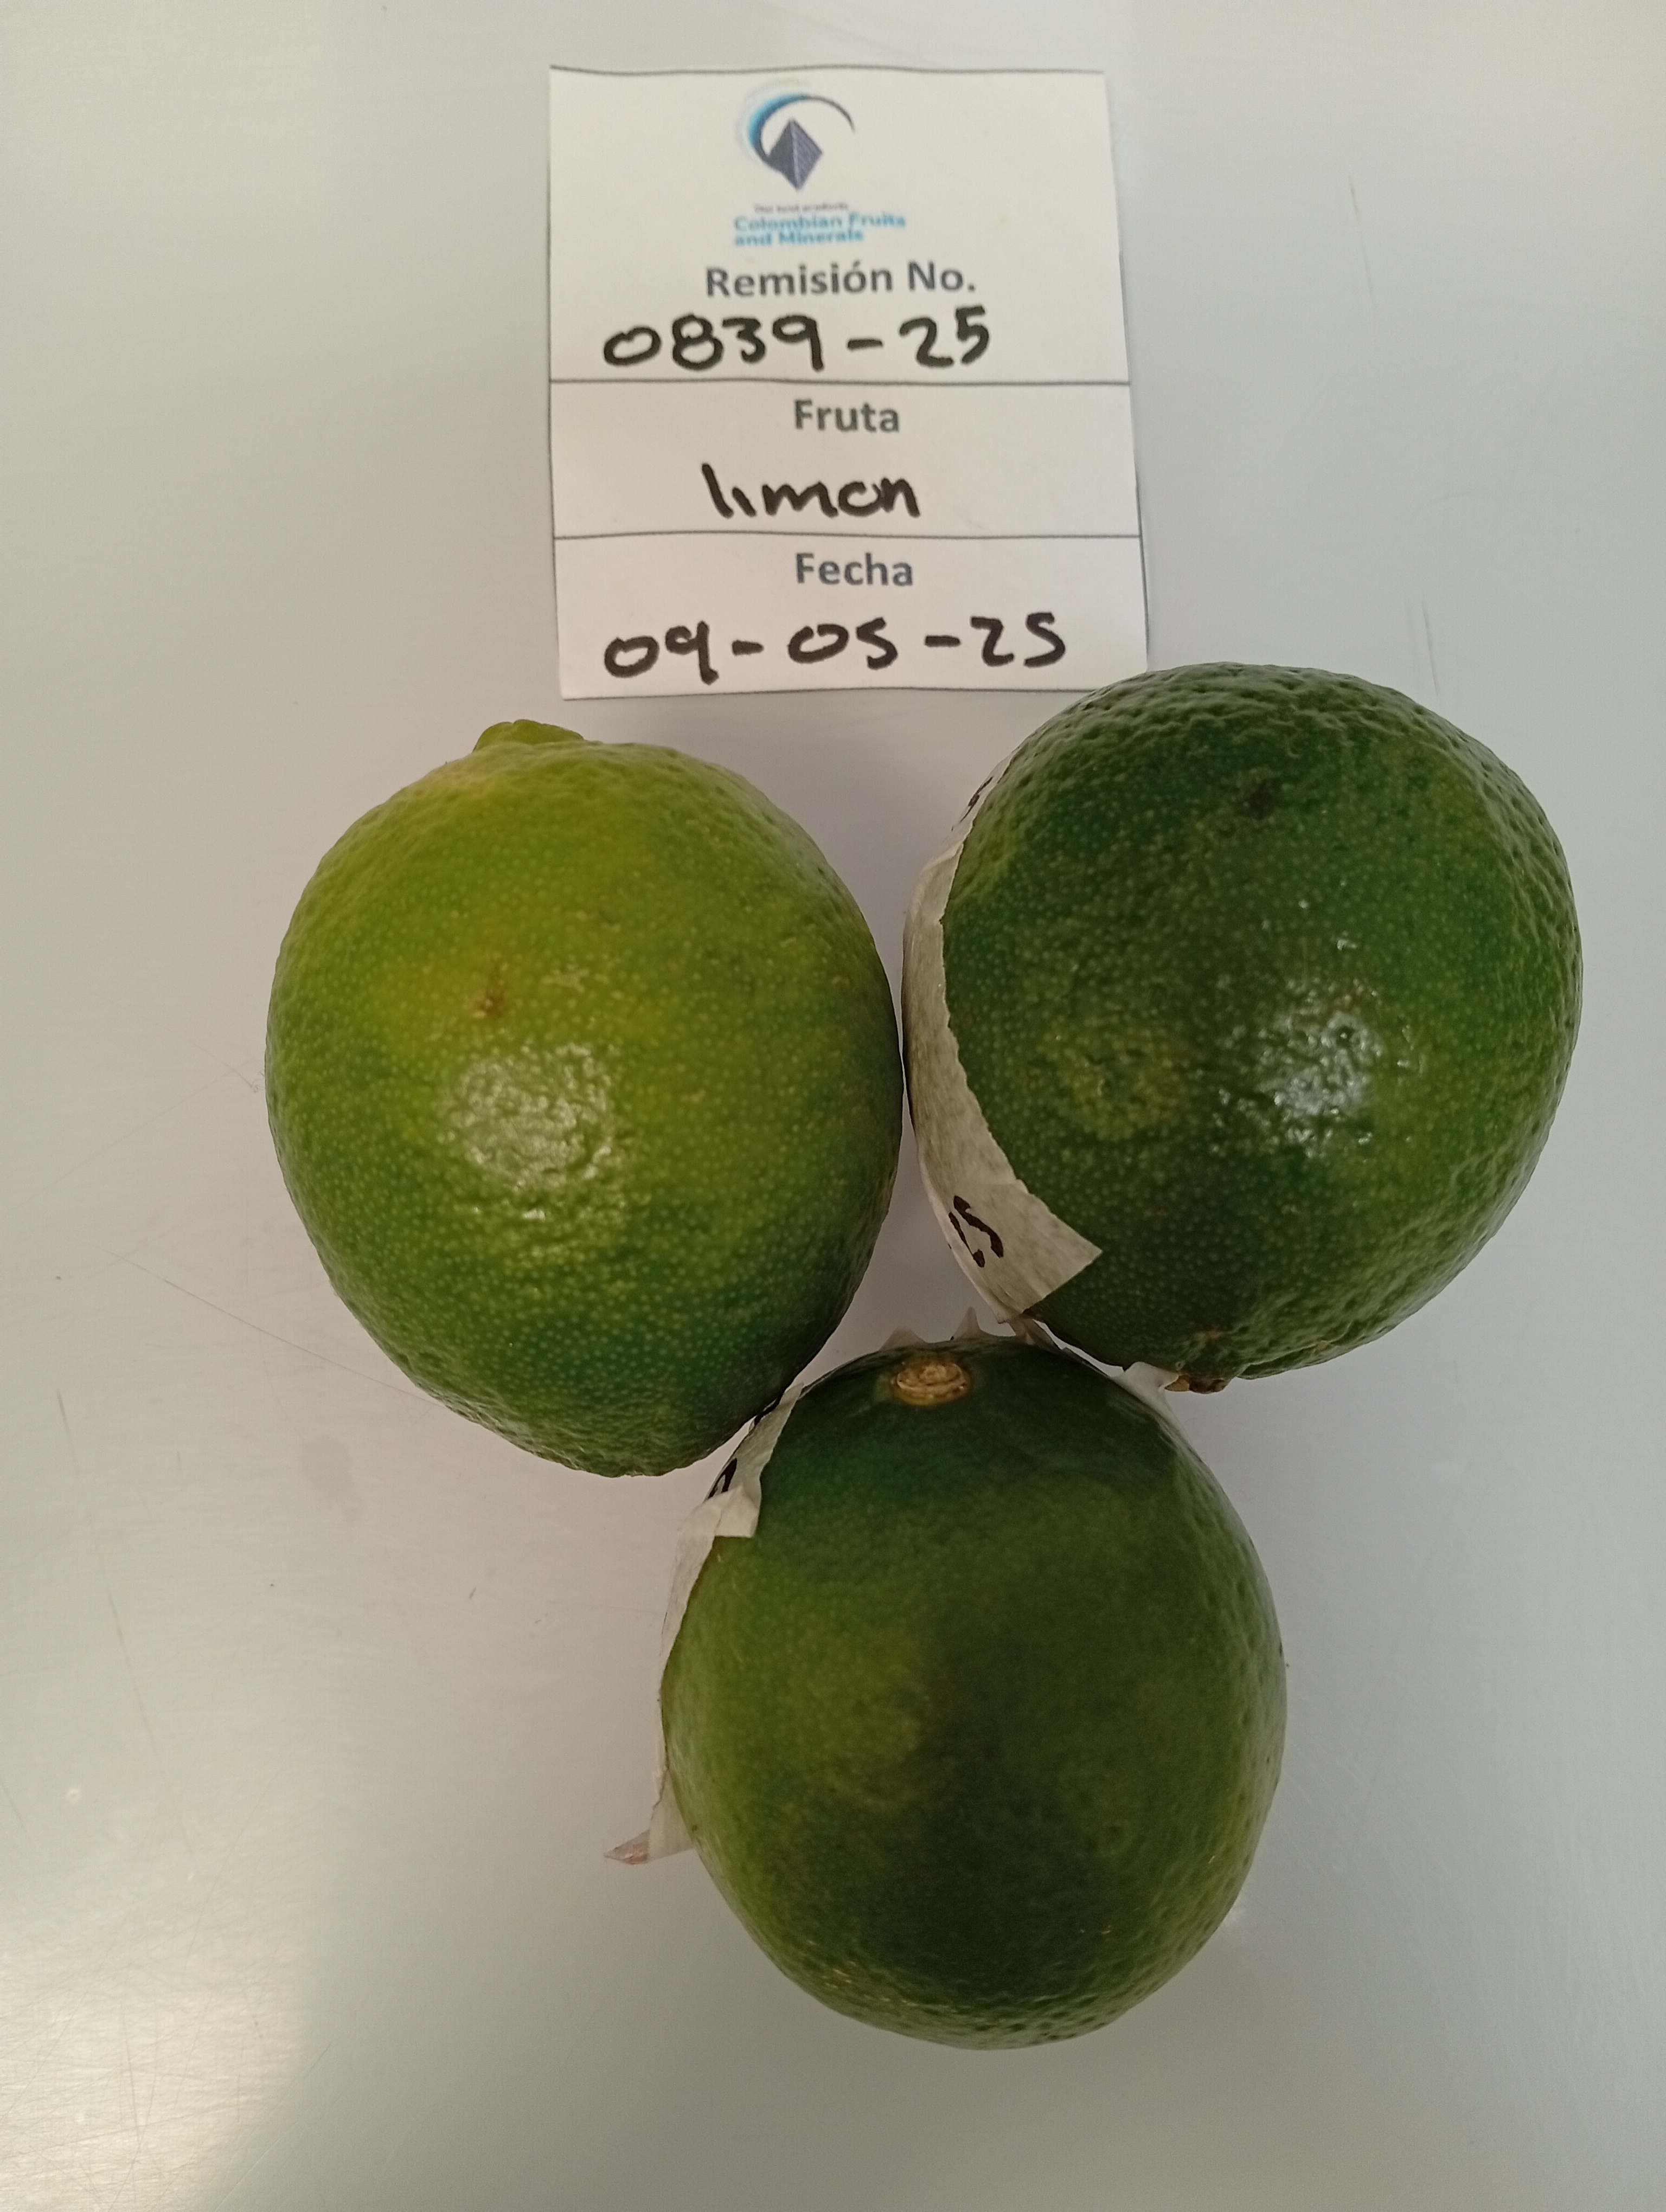 Colombian Fruits
and Minerals
Remisión No.
0839-25
Fruta
limon
Fecha
09-05-25
25